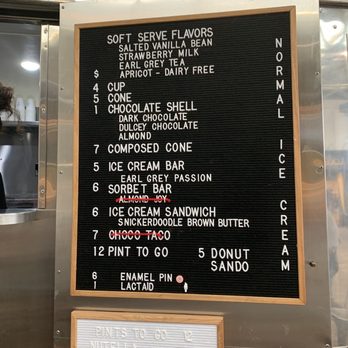 SOFT SERVE FLAVORS
SALTED VANILLA BEAN
STRAWBERRY MILK
EARL GREY TEA
$ APRICOT - DAIRY FREE
4 CUP
5 CONE
1 CHOCOLATE SHELL
DARK CHOCOLATE
DULCEY CHOCOLATE
ALMOND
7 COMPOSED CONE
5 ICE CREAM BAR
EARL GREY PASSION
6 SORBET BAR
ALMOND JOY
6 ICE CREAM SANDWICH
SNICKERDOODLE BROWN BUTTER
7 CHOCO TACO
12 PINT TO GO 5 DONUT
SANDO
6 ENAMEL PIN
1 LACTAID
NORMAL ICE CREAM
PINTS TO GO 12